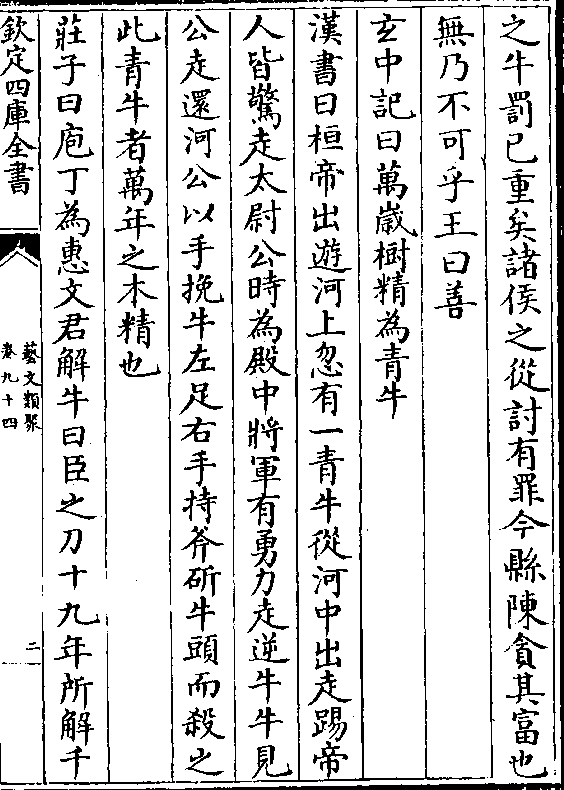 之牛罰已重矣諸侯之從討有罪今縣陳貪其富也
無乃不可乎王曰善
玄中記曰萬歲樹精為青牛
漢書曰桓帝出遊河上忽有一青牛從河中出走踢帝
人皆驚走太尉公時為殿中將軍有勇力走逆牛牛見
公走還河公以手挽牛左足右手持斧斫牛頭而殺之
此青牛者萬年之木精也
莊子曰庖丁為惠文君解牛曰臣之刀十九年所解千
欽定四庫全書
藝文類聚
卷九十四
二